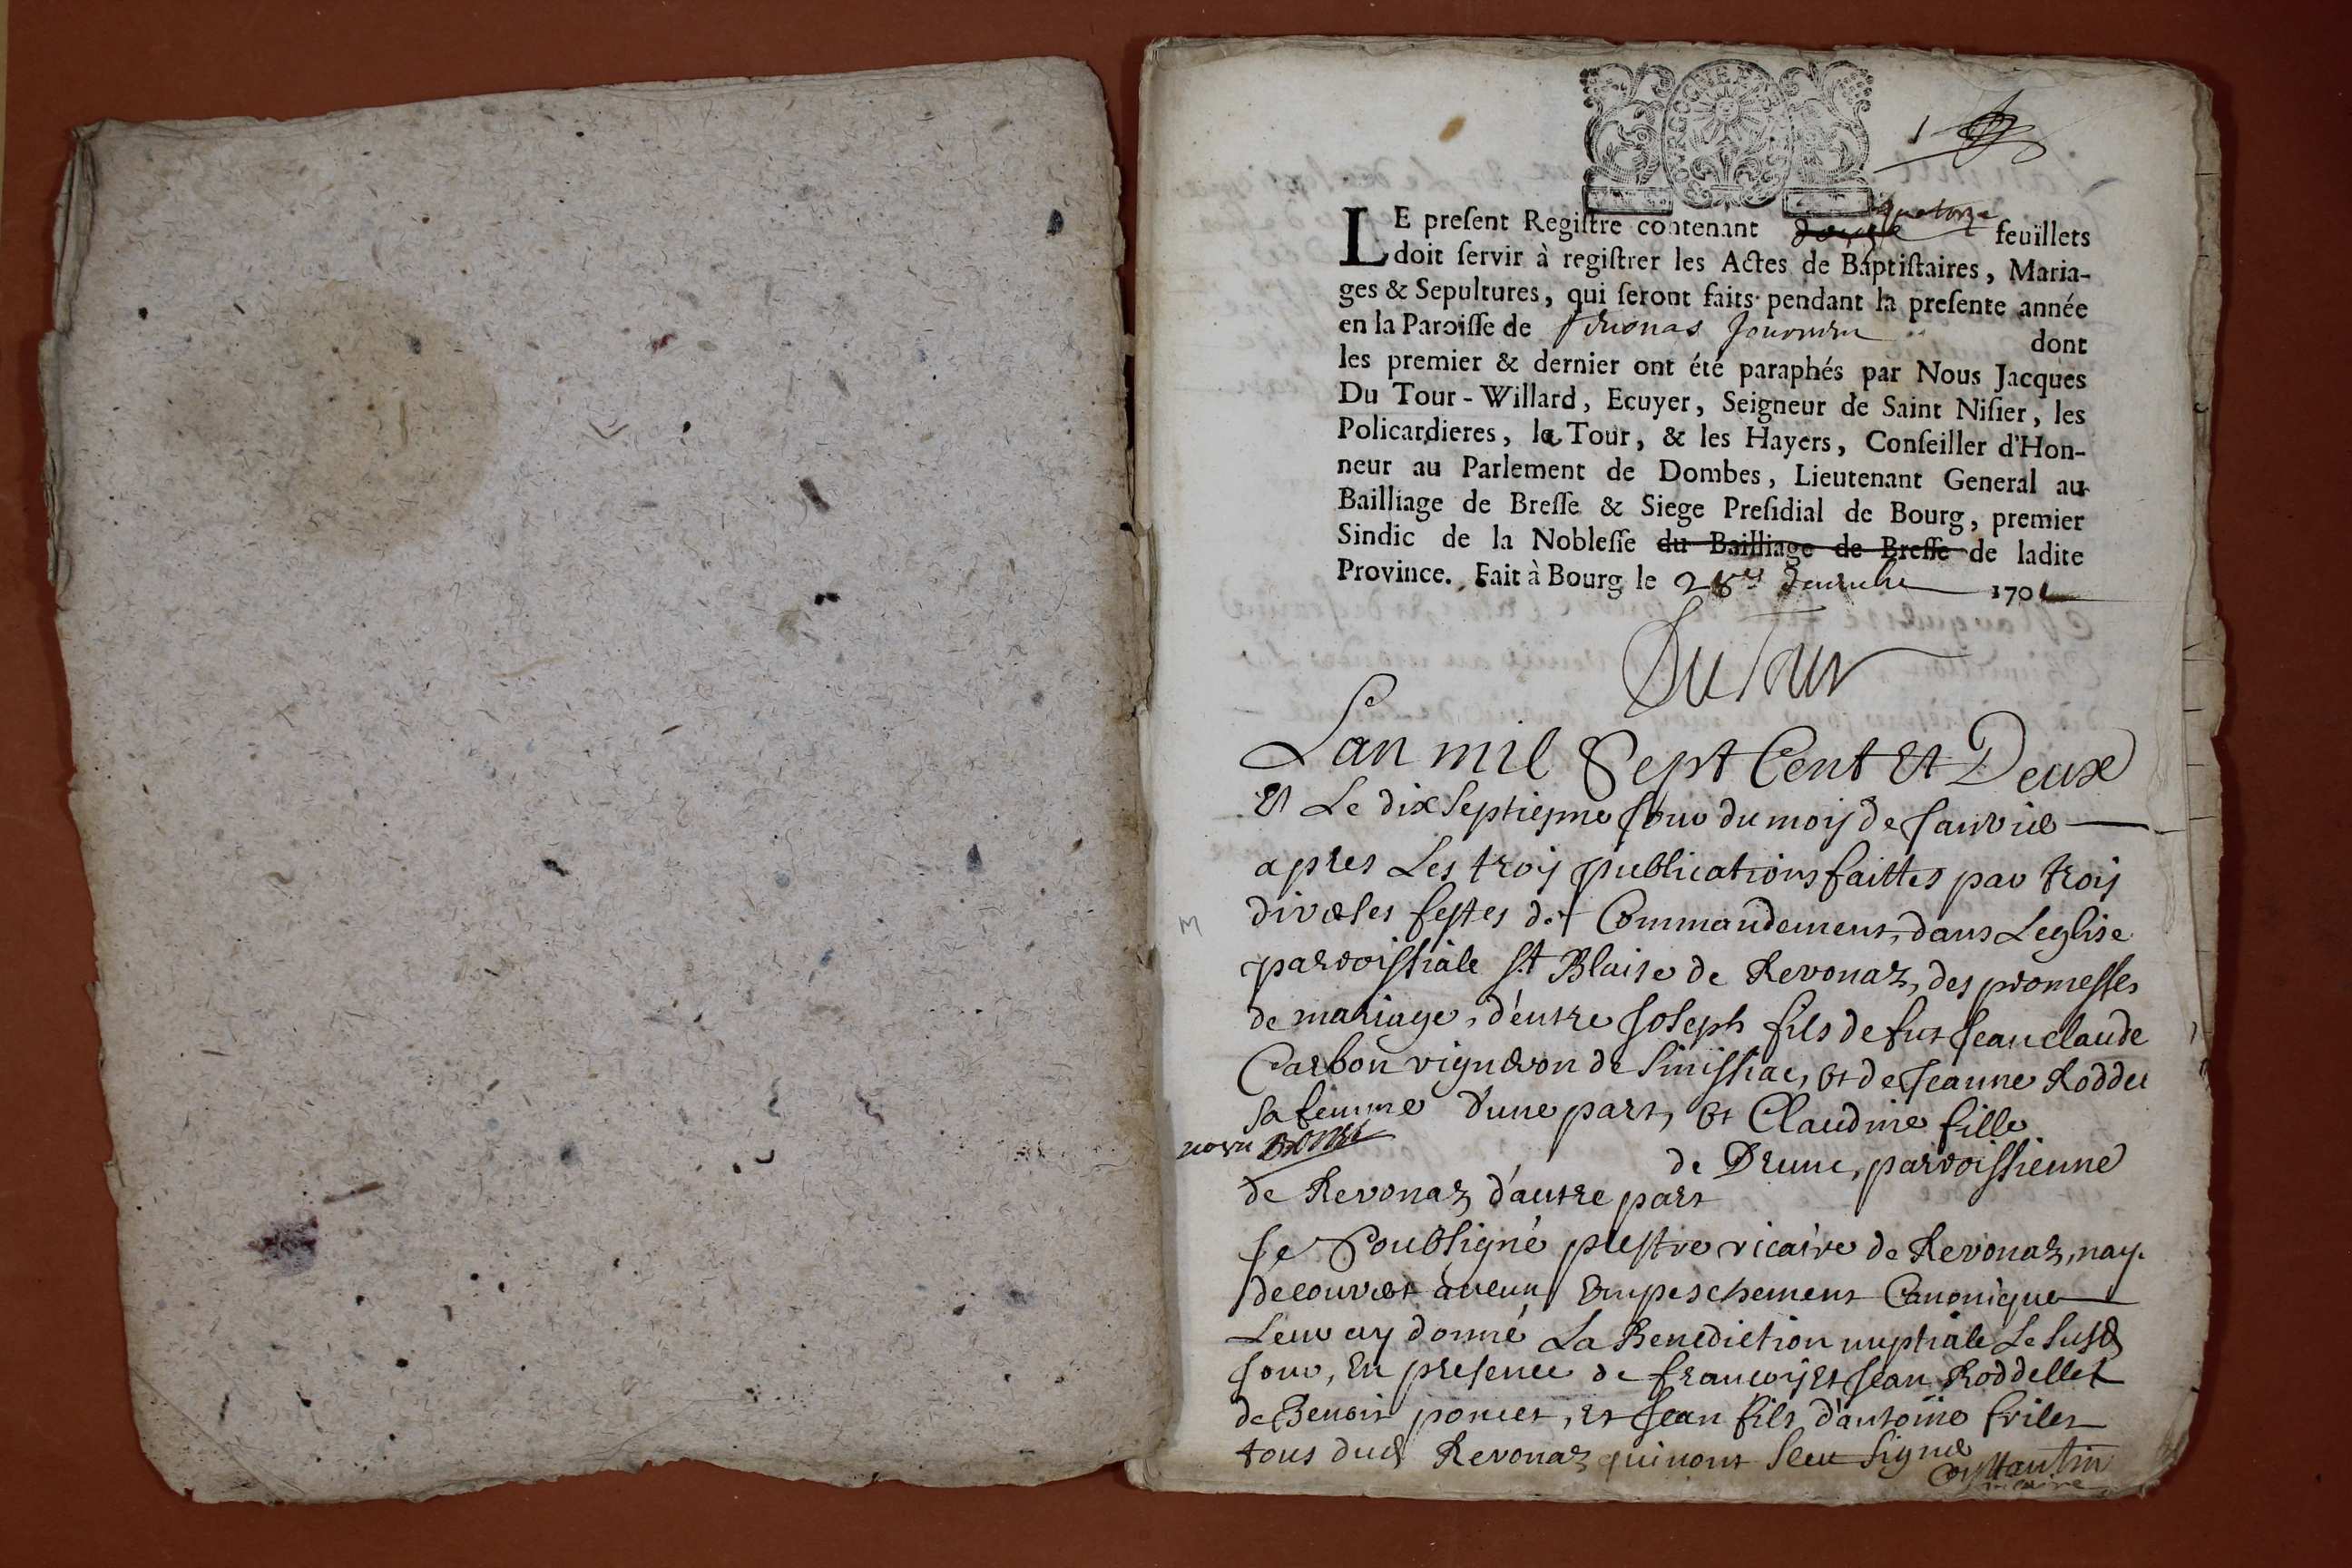 1
quatorze
LE preſent Regiſtre contenant feuïllets
doit ſervir à regiſtrer les Actes de Baptiſtaires, Maria-
ges & Sepultures, qui ſeront faits pendant la preſente année
en la Paroiſſe de dont
les premier & dernier ont été paraphés par Nous Jacques
Du Tour-Willard, Ecuyer, Seigneur de Saint Niſier, les
Policardieres, la Tour, & les Hayers, Conſeiller d'Hon-
neur au Parlement de Dombes, Lieutenant General au
Bailliage de Breſſe & Siege Preſidial de Bourg, premier
Sindic de la Nobleſſe du Bailliage de Breſſe de ladite
Province. Fait à Bourg le 28e 170
Dutour
Lan mil Sept Cent Et Deux
Et Le dix Septiesme Jour du mois de Janvier
apres Les trois publications faittes par trois
diverses festes de Commandement, dans Leglise
parroissiale St Blaise de Revonaz, des promesses
de mariage, d'entre Joseph fils de fut Jean claude
Carbon vigneron de Simissiac, Et de Jeanne Roddet
sa femme d'une part, Et Claudine fille
M
de Drune, parroissienne
de Revonaz d'autre part
Je Soubsigné prestre vicaire de Revonaz, nay
decouvert aucun Empeschement Canonique
Leur ay donné La Benediction nuptiale Le susd
Jour, En presence de francois Et Jean Roddellet
de Benoit poncet, Et Jean fils d'antoine frilet
tous dud Revonaz qui nont sceu signer
Constantin
vicaire